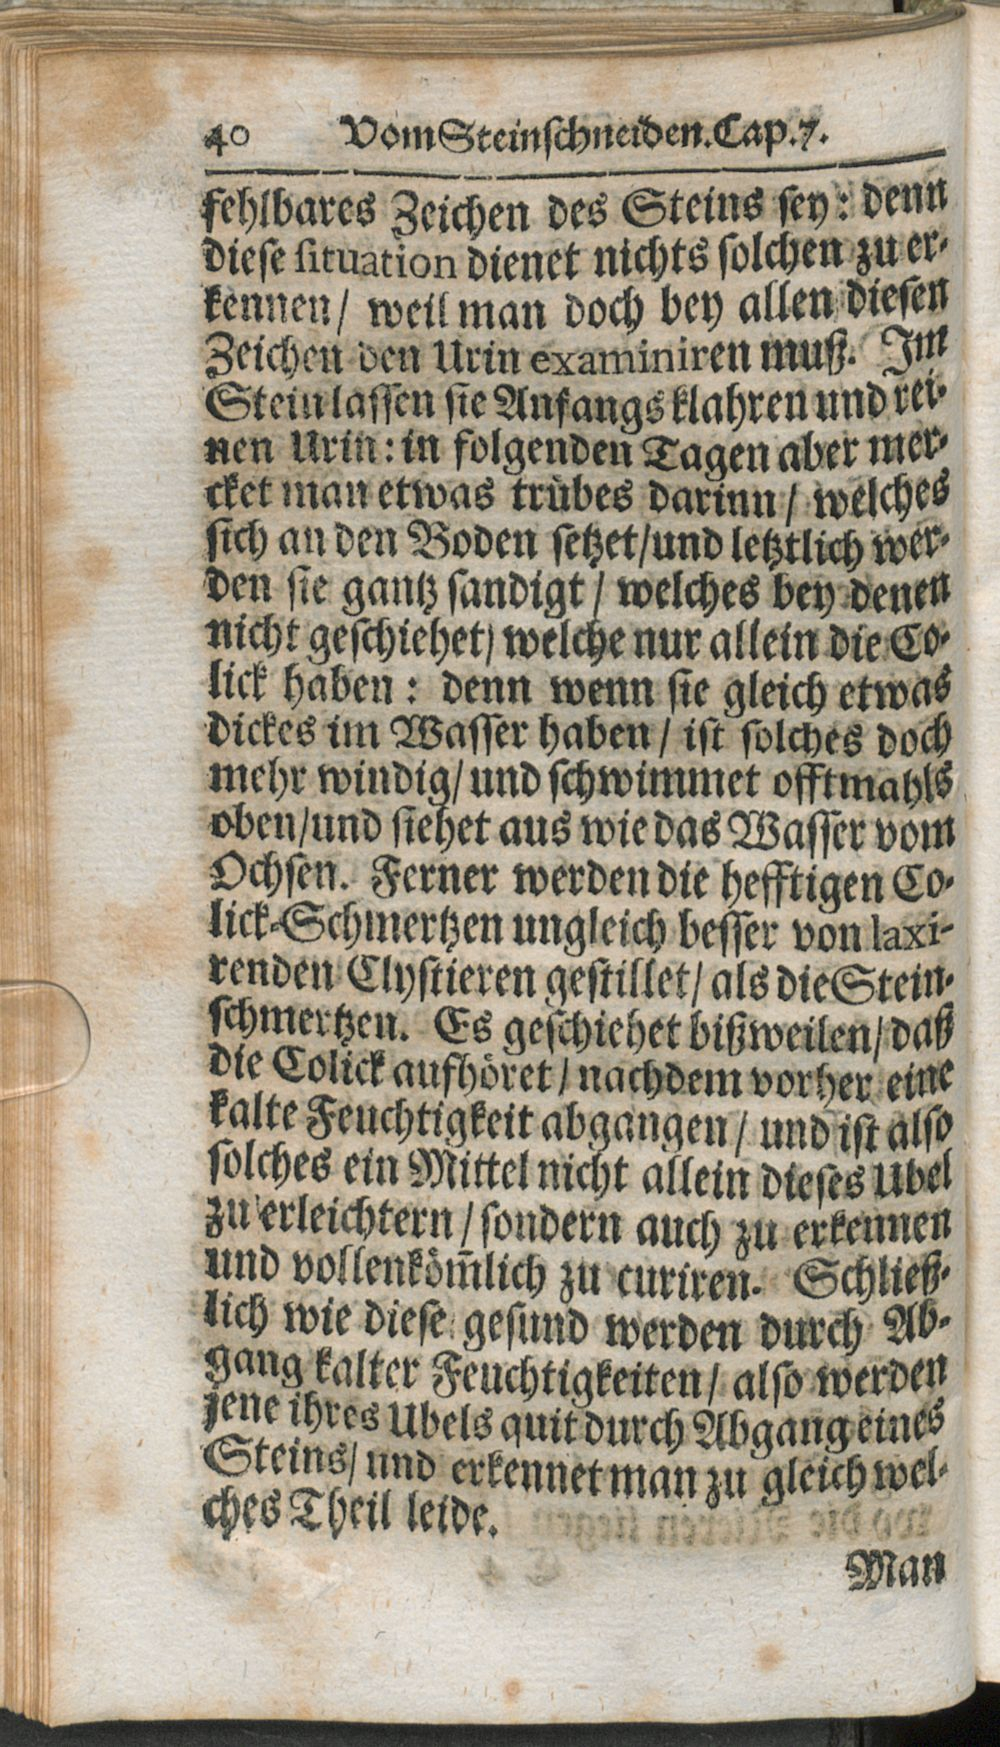 40 Vom Steinschneiden. Cap. 7.
fehlbares Zeichen des Steins sey: denn
diese situation dienet nichts solchen zu er-
kennen/ weil man doch bey allen diesen
Zeichen den Urin examiniren muß. Im
Stein lassen sie Anfangs klahren und rei-
nen Urin: in folgenden Tagen aber mer-
cket man etwas trübes darinn/ welches
sich an den Boden setzet/ und letztlich wer-
den sie gantz sandigt/ welches bey denen
nicht geschiehet/ welche nur allein die Co-
lick haben: denn wenn sie gleich etwas
dickes im Wasser haben/ ist solches doch
mehr windig/ und schwimmet offtmahls
oben/ und siehet aus wie das Wasser vom
Ochsen. Ferner werden die hefftigen Co-
lick-Schmertzen ungleich besser von laxi-
renden Clystieren gestillet/ als die Stein-
schmertzen. Es geschiehet bißweilen/ daß
die Colick aufhöret/ nachdem vorher eine
kalte Feuchtigkeit abgangen/ und ist also
solches ein Mittel nicht allein dieses Ubel
zu erleichtern/ sondern auch zu erkennen
und vollenköm̄lich zu curiren. Schließ-
lich wie diese gesund werden durch Ab-
gang kalter Feuchtigkeiten/ also werden
jene ihres Ubels quit durch Abgang eines
Steins/ und erkennet man zu gleich wel-
ches Theil leide.
Man